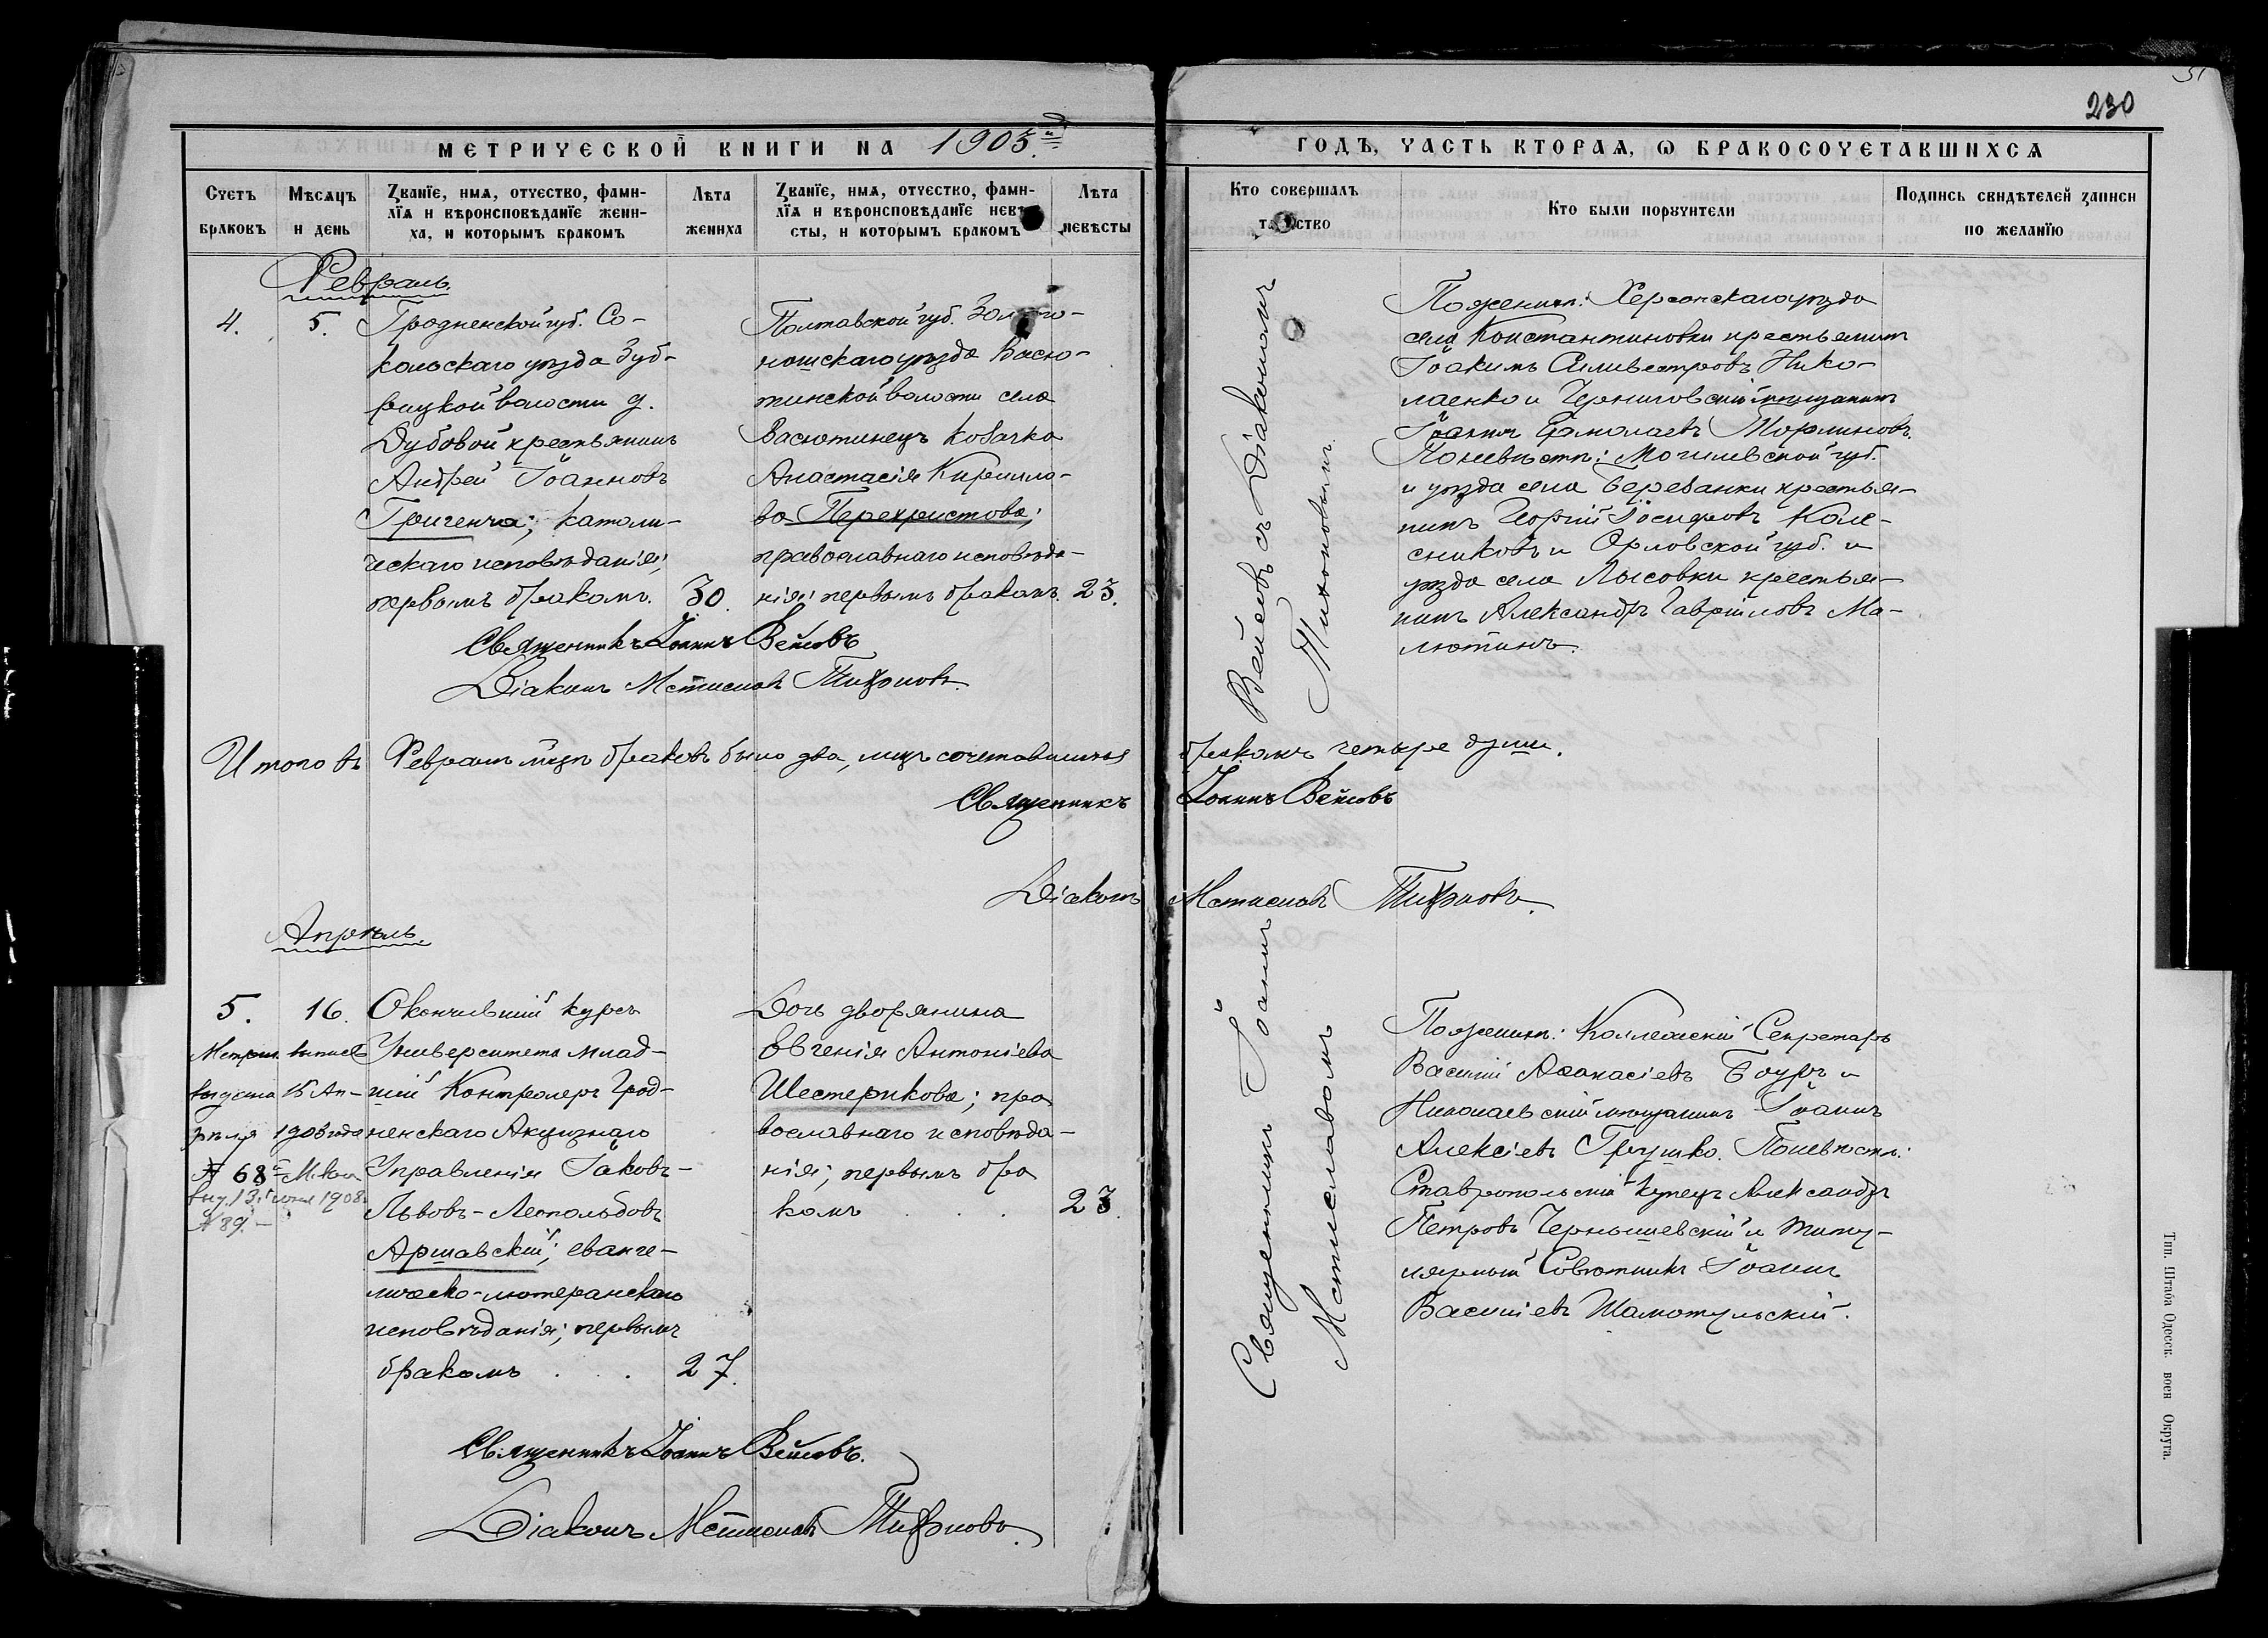 51
230
МЕТРИЧЕСКОЙ КНИГИ НА 1903й
ГОДЪ, ЧАСТЬ ВТОРАЯ, Ѡ БРАКОСОЧЕТАВШИХСЯ
Счетъ браковъ
Мѣсяцъ и день
Званїе, имя, отчество, фами-
лїя и вѣроисповѣданїе жени-
ха, и которымъ бракомъ
Лѣта жениха
Званїе, имя, отчество, фами-
лїя и вѣроисповѣданїе невѣ-
сты, и которымъ бракомъ
Лѣта невѣсты
Кто совершалъ таинство
Кто были поручители
Подпись свидѣтелей записи
по желанїю
Февраль.
4. 5.
Гродненской губ. Со-
кольскаго уѣзда Зуб-
рицкой волости д.
Дубовой крестьянинъ
Андрей Іоанновъ
Григенча; католи-
ческаго исповѣданія;
первымъ бракомъ. 30.
Полтавской губ. Золото-
ношскаго уѣзда Васю-
тинской волости села
Васютинецъ козачка
Анастасія Кирилло-
ва Перехристова;
православнаго исповѣда-
нія; первымъ бракомъ. 23.
Вейсовъ съ Діакономъ
Тихоновымъ.
По женихѣ: Херсонскаго уѣзда
села Константиновки крестьянинъ
Іоакимъ Сильвестровъ Нико-
лаенко и Черниговскій мѣщанинъ
Іоаннъ Ермолаевъ Торлиновъ.
По невѣстѣ: Могилевской губ.
и уѣзда села Березанки крестья-
нинъ Георгій Іосифовъ Коле-
сниковъ и Орловской губ. и
уѣзда села Лысовки крестья-
нинъ Александръ Гавріиловъ Ма-
лютинъ.
Священникъ Іоаннъ Вейсовъ
Діаконъ Мстиславъ Тихоновъ.
Итого въ Февралѣ м-цѣ браковъ было два, лицъ сочетавшихся бракомъ четыре души.
Священникъ Іоаннъ Вейсовъ
Діаконъ Мстиславъ Тихоновъ.
Апрѣль.
5. 16.
Метрич. выпись
выдана 15 Ап-
рѣля 1903 года
№ 68й
выд. 13 іюня 1908
№ 89. —
Окончившій курсъ
Университета млад-
шій Контролеръ Грод-
ненскаго Акцизнаго
Управленія Іаковъ-
Львовъ-Леопольдовъ
Аршавскій; еванге-
лическо-лютеранскаго
исповѣданія; первымъ
бракомъ . . . 27.
Дочь дворянина
Евгенія Антоніева
Шестерикова; пра
вославнаго исповѣда-
нія; первымъ бра
комъ . . . 23.
Священникъ Іоаннъ
Мстиславомъ
По женихѣ: Коллежскій Секретарь
Василій Аѳанасіевъ Боуръ и
Николаевскій мѣщанинъ Іоаннъ
Алексіевъ Грушко. По невѣстѣ:
Ставропольскій купецъ Александръ
Петровъ Чернышевскій и титу-
лярный Совѣтникъ Іоаннъ
Василіевъ Шамотульскій.
Священникъ Іоаннъ Вейсовъ.
Діаконъ Мстиславъ Тихоновъ.
Тип. Штаба Одесск. воен Округа.